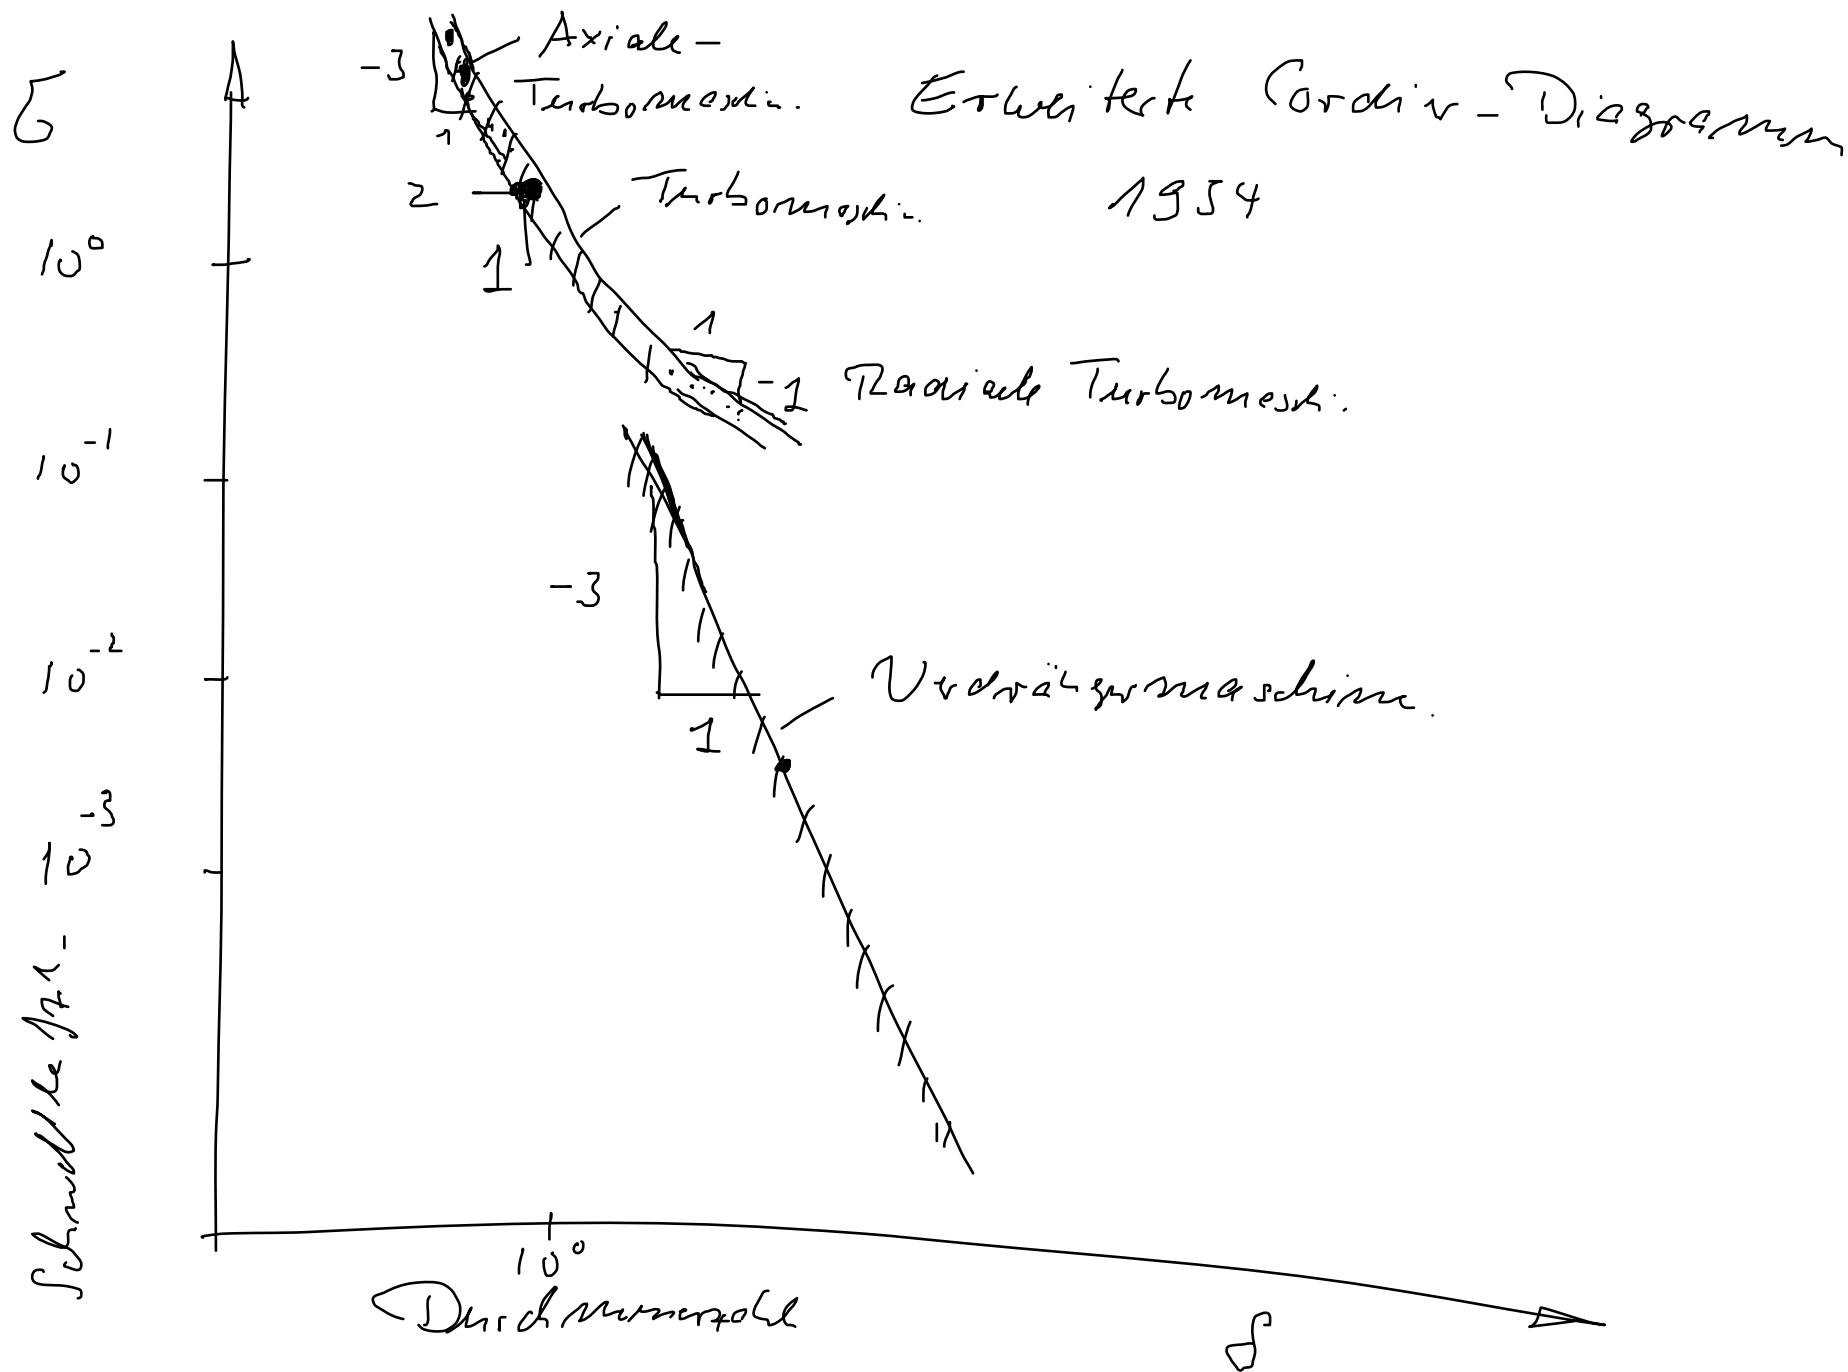 σ
-3
1
Axiale-
Turbomaschin.
Erweiterte Cordier-Diagramm
1954
2
1
Turbomaschin.
10⁰
1
-1
Radiale Turbomasch.
10⁻¹
-3
1
10⁻²
Verdrängermaschine.
10⁻³
Schnelllaufzl.
10⁰
Durchmesserzahl
δ